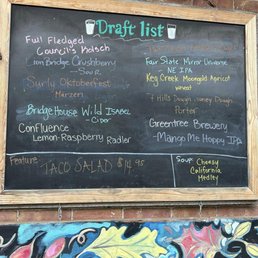 Draft list
Full Fledged
Council's Kolsch
Iron Bridge Crushberry
-Sour
Surly Oktoberfest
Märzen
Bridge House Wild Isabel
-Cider
Confluence
Lemon-Raspberry Radler
Fair State Mirror Universe
NE IPA
Keg Creek Moongold Apricot
wheat
7 Hills Dough Honey Dough
Porter
Greentree Brewery
-Mango Me Happy IPA
Feature
TACO SALAD $14.95
Soup
Cheesy
California
Medley